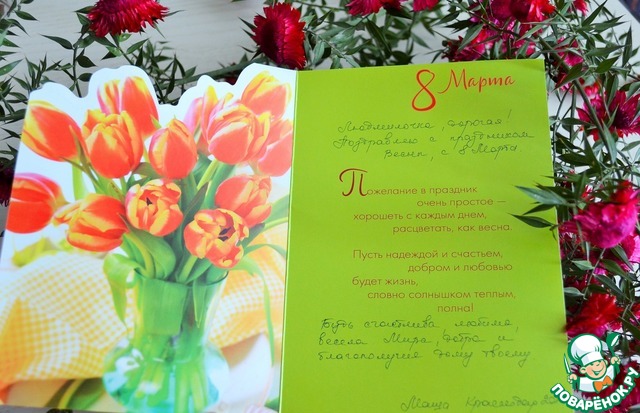 8 Марта
Людмилочка, дорогая!
Поздравляю с праздником
весны, с 8 Марта.
Пожелание в праздник
очень простое —
хорошеть с каждым днем,
расцветать, как весна.
Пусть надеждой и счастьем,
добром и любовью
будет жизнь,
словно солнышком теплым,
полна!
Будь счастлива, любима,
весела Мира, добра и
благополучия дому твоему
Маша Краснодар
ПОВАРЁНОК.РУ